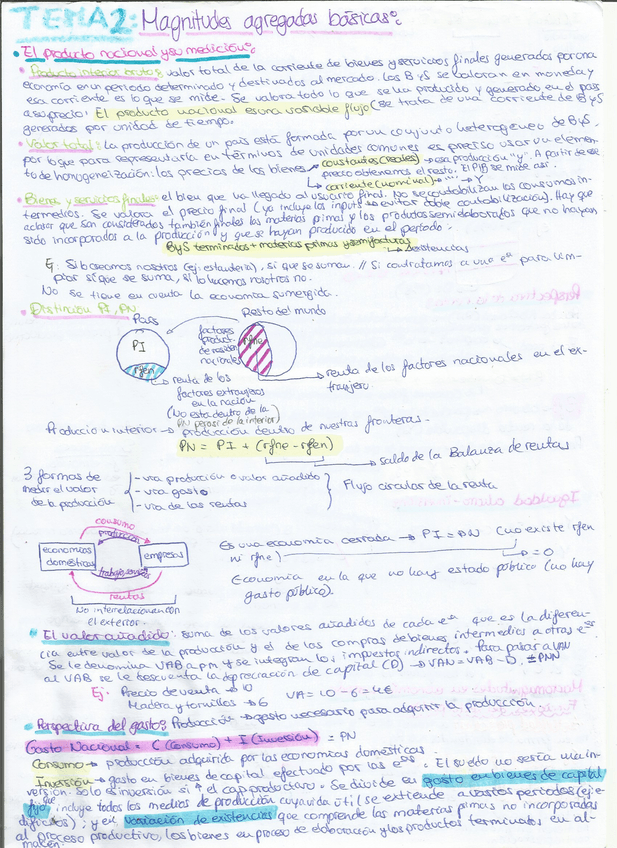 TEMA 2: Magnitudes agregadas básicas:
• El producto nacional y su medición:
• Producto interior bruto: valor total de la corriente de bienes y servicios finales generados por una
economía en un periodo determinado y destinados al mercado. Los B y S se valoran en moneda y
esa corriente es lo que se mide. Se valora todo lo que se ha producido y generado en el país
a su precio. El producto nacional es una variable flujo (se trata de una corriente de B y S
generados por unidad de tiempo.
• Valor total: la producción de un país está formada por un conjunto heterogéneo de B y S.
por lo que para representarla en términos de unidades comunes es preciso usar un elemen-
to de homogeneización: los precios de los bienes → constantes (reales) → esa producción "y". A partir de ese
precio obtenemos el resto. El PIB se mide así.
→ corriente (nominal) → "" → Y
• Bienes y servicios finales: el bien que va llegado al usuario final. No se contabilizan los consumos in-
termedios. Se valora el precio final (ya incluye los inputs y se evitar doble contabilización). Hay que
aclarar que son considerados también finales las materias primas y los productos semielaborados que no hayan
sido incorporados a la producción y que se hayan producido en el periodo.
B y S terminados + materias primas y semifacturas
→ existencias
Ej: Si boseamos nosotros (ej. estantería), si que se suman. // Si contratamos a uno eª para lim-
piar si que se suma, si lo hacemos nosotros no.
No se tiene en cuenta la economía sumergida.
• Distinción PI, PN
País
Resto del mundo
PI
rfen
factores
product.
de residen
nacionales
rfne
→ renta de los
factores extranjeros
en la nación
(No está dentro de la
PN pero si de la interior)
→ renta de los factores nacionales en el ex-
tranjero
Producción interior → producción dentro de nuestras fronteras.
PN = PI + (rfne - rfen)
→ saldo de la Balanza de rentas
3 formas de
medir el valor
de la producción
- vía producción o valor añadido
- vía gasto
- vía de las rentas
Flujo circular de la renta
consumo
producción
economías
domésticas
empresas
trabajo, servicios
rentas
No interrelacionan con
el exterior.
Es una economía cerrada → PI = PN (no existe rfen
ni rfne)
→ = 0
Economía en la que no hay estado público (no hay
gasto público).
• El valor añadido: suma de los valores añadidos de cada eˢᵃ que es la diferen-
cia entre valor de la producción y el de las compras de bienes intermedios a otras eˢᵃˢ
Se le denomina VAB a pm y se integran los impuestos indirectos. Para pasar a VAN
al VAB se le descuenta la depreciación de capital (D) → VAN = VAB - D. = PNN
Ej: Precio de venta → 10
Madera y tornillos → 6
VA = 10 - 6 = 4€
• Perspectiva del gasto: Producción → gasto necesario para adquirir la producción.
Gasto Nacional = C (Consumo) + I (Inversión) = PN
Consumo → producción adquirida por las economías domésticas.
Inversión → gasto en bienes de capital efectuado por las eˢᵃˢ. El suelo no sería una in-
versión. Solo es inversión si ↑ el cap. productivo. Se divide en gasto en bienes de capital
fijo que incluye todos los medios de producción cuya vida útil se extiende a varios periodos (ej: e-
dificios) ; y en variación de existencias que comprende las materias primas no incorporadas
al proceso productivo, los bienes en proceso de elaboración y los productos terminados en al-
macén.